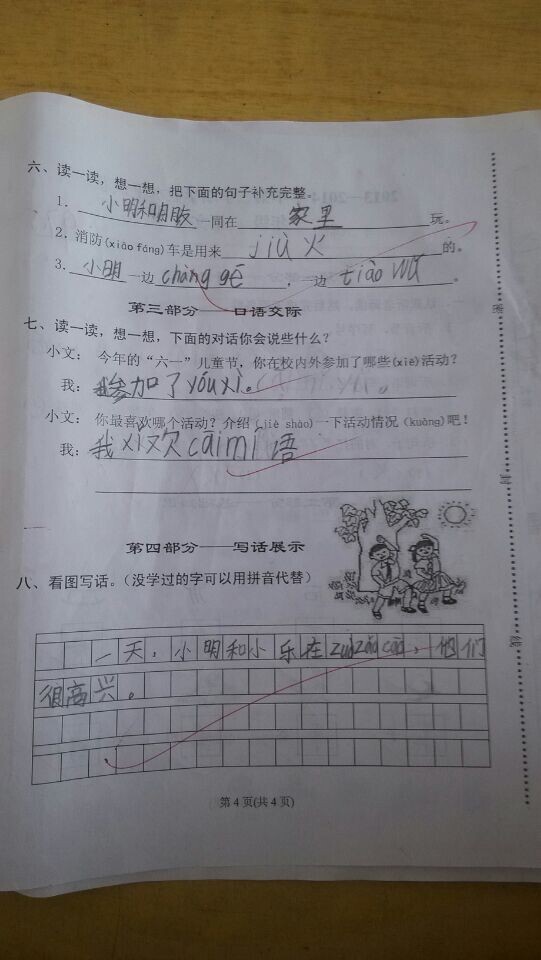 六、读一读，想一想，把下面的句子补充完整。
1．小明和朋友一同在家里玩。
2．消防(xiāo fáng)车是用来jiù火的。
3．小明一边chàng gē，一边tiào wǔ。
第三部分——口语交际
七、读一读，想一想，下面的对话你会说些什么？
小文：今年的“六一”儿童节，你在校内外参加了哪些(xiē)活动？
我：我参加了yóuxì。
小文：你最喜欢哪个活动？介绍(jiè shào)一下活动情况(kuàng)吧！
我：我xǐ欢cāimí语
第四部分——写话展示
八、看图写话。（没学过的字可以用拼音代替）
一天，小明和小乐在，他们
很高兴。
第4页(共4页)
封
线